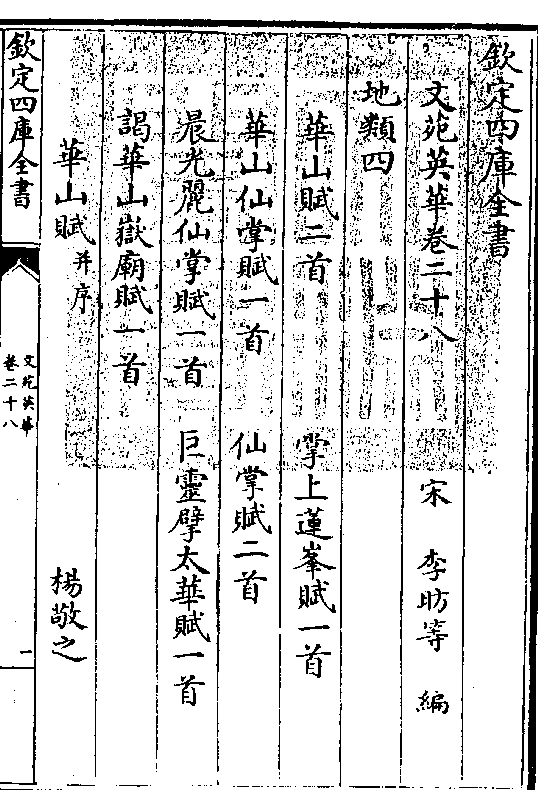 欽定四庫全書
文苑英華卷二十八
宋 李昉等 編
地類四
華山賦二首 掌上蓮峯賦一首
華山仙掌賦一首 仙掌賦二首
晨光麗仙掌賦一首 巨靈擘太華賦一首
謁華山嶽廟賦一首
華山賦并序 楊敬之
欽定四庫全書
文苑英華
卷二十八
一